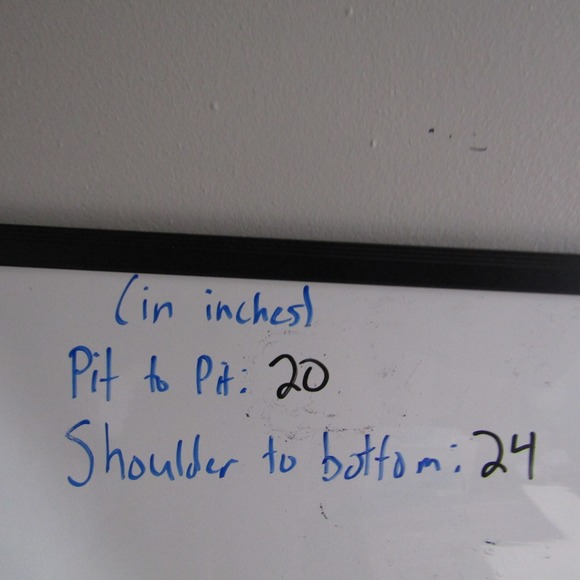 (in inches)
Pit to Pit: 20
Shoulder to bottom: 24